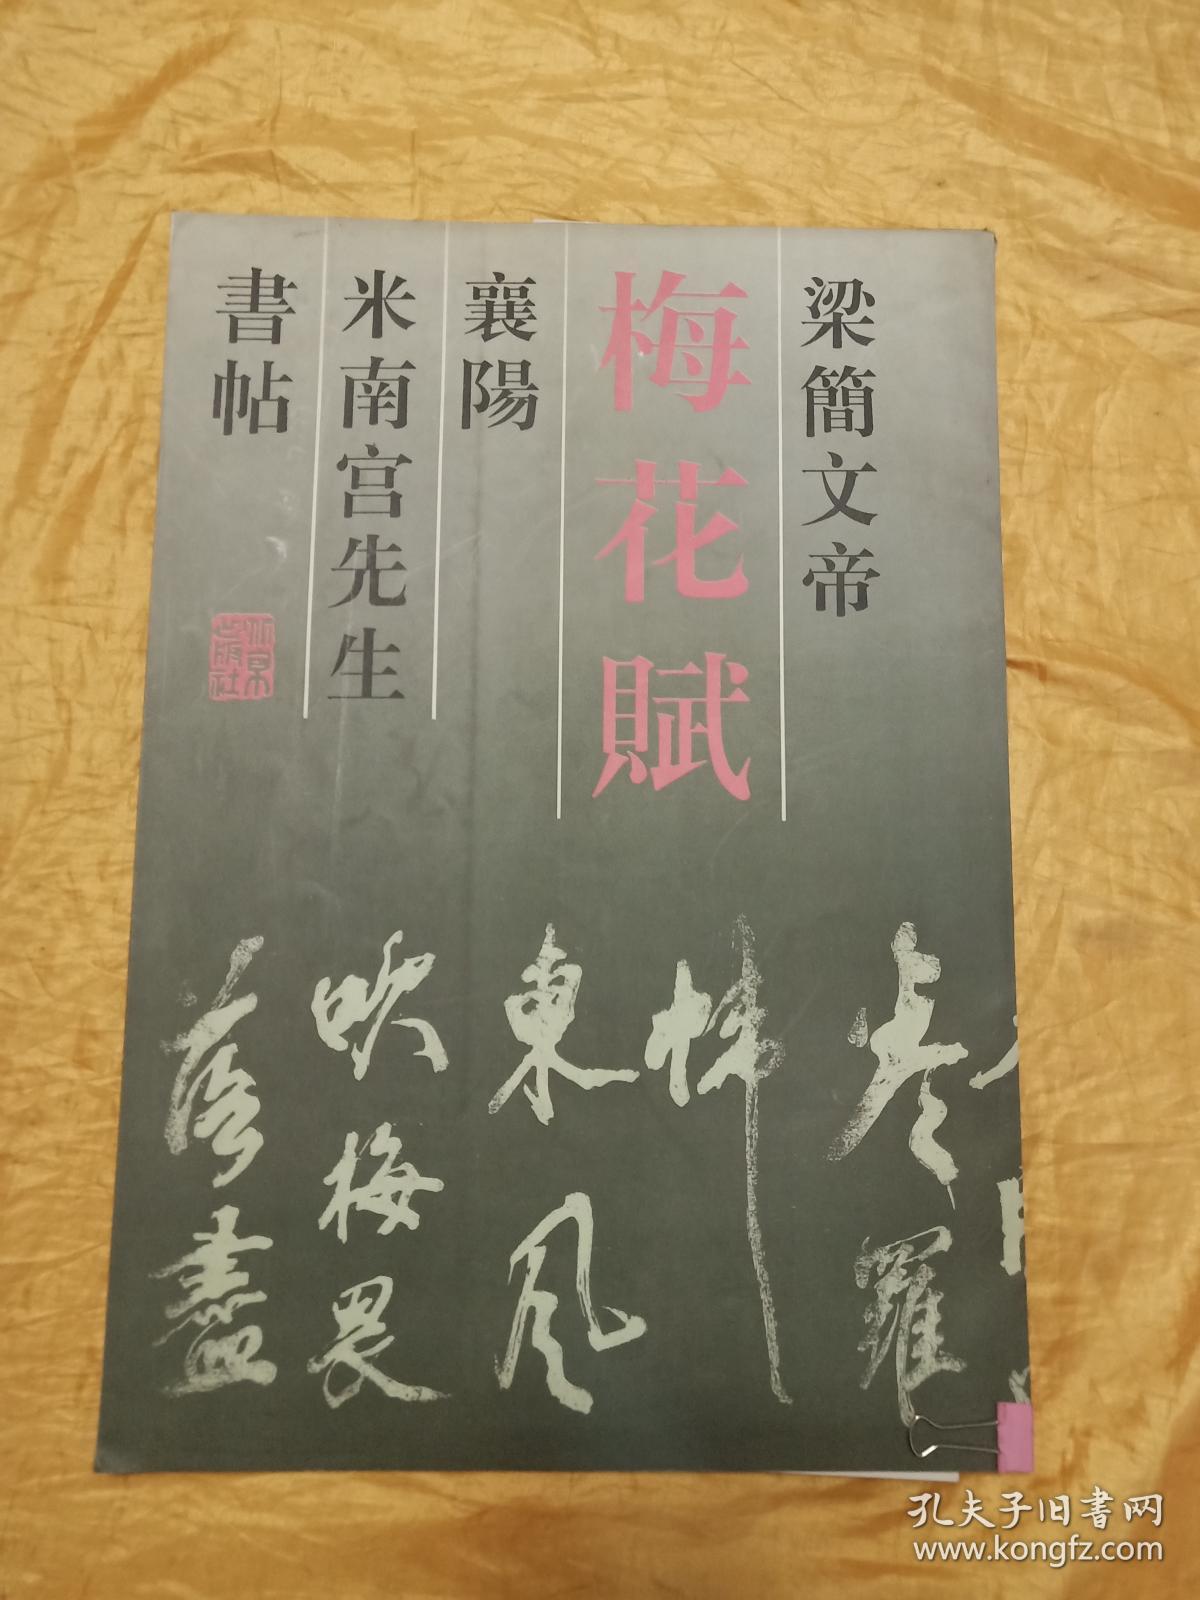 梁簡文帝
梅花賦
襄陽
米南宫先生
書帖
北京
出版社
羅
東風
吹梅畏
落盡
孔夫子旧书网
www.kongfz.com